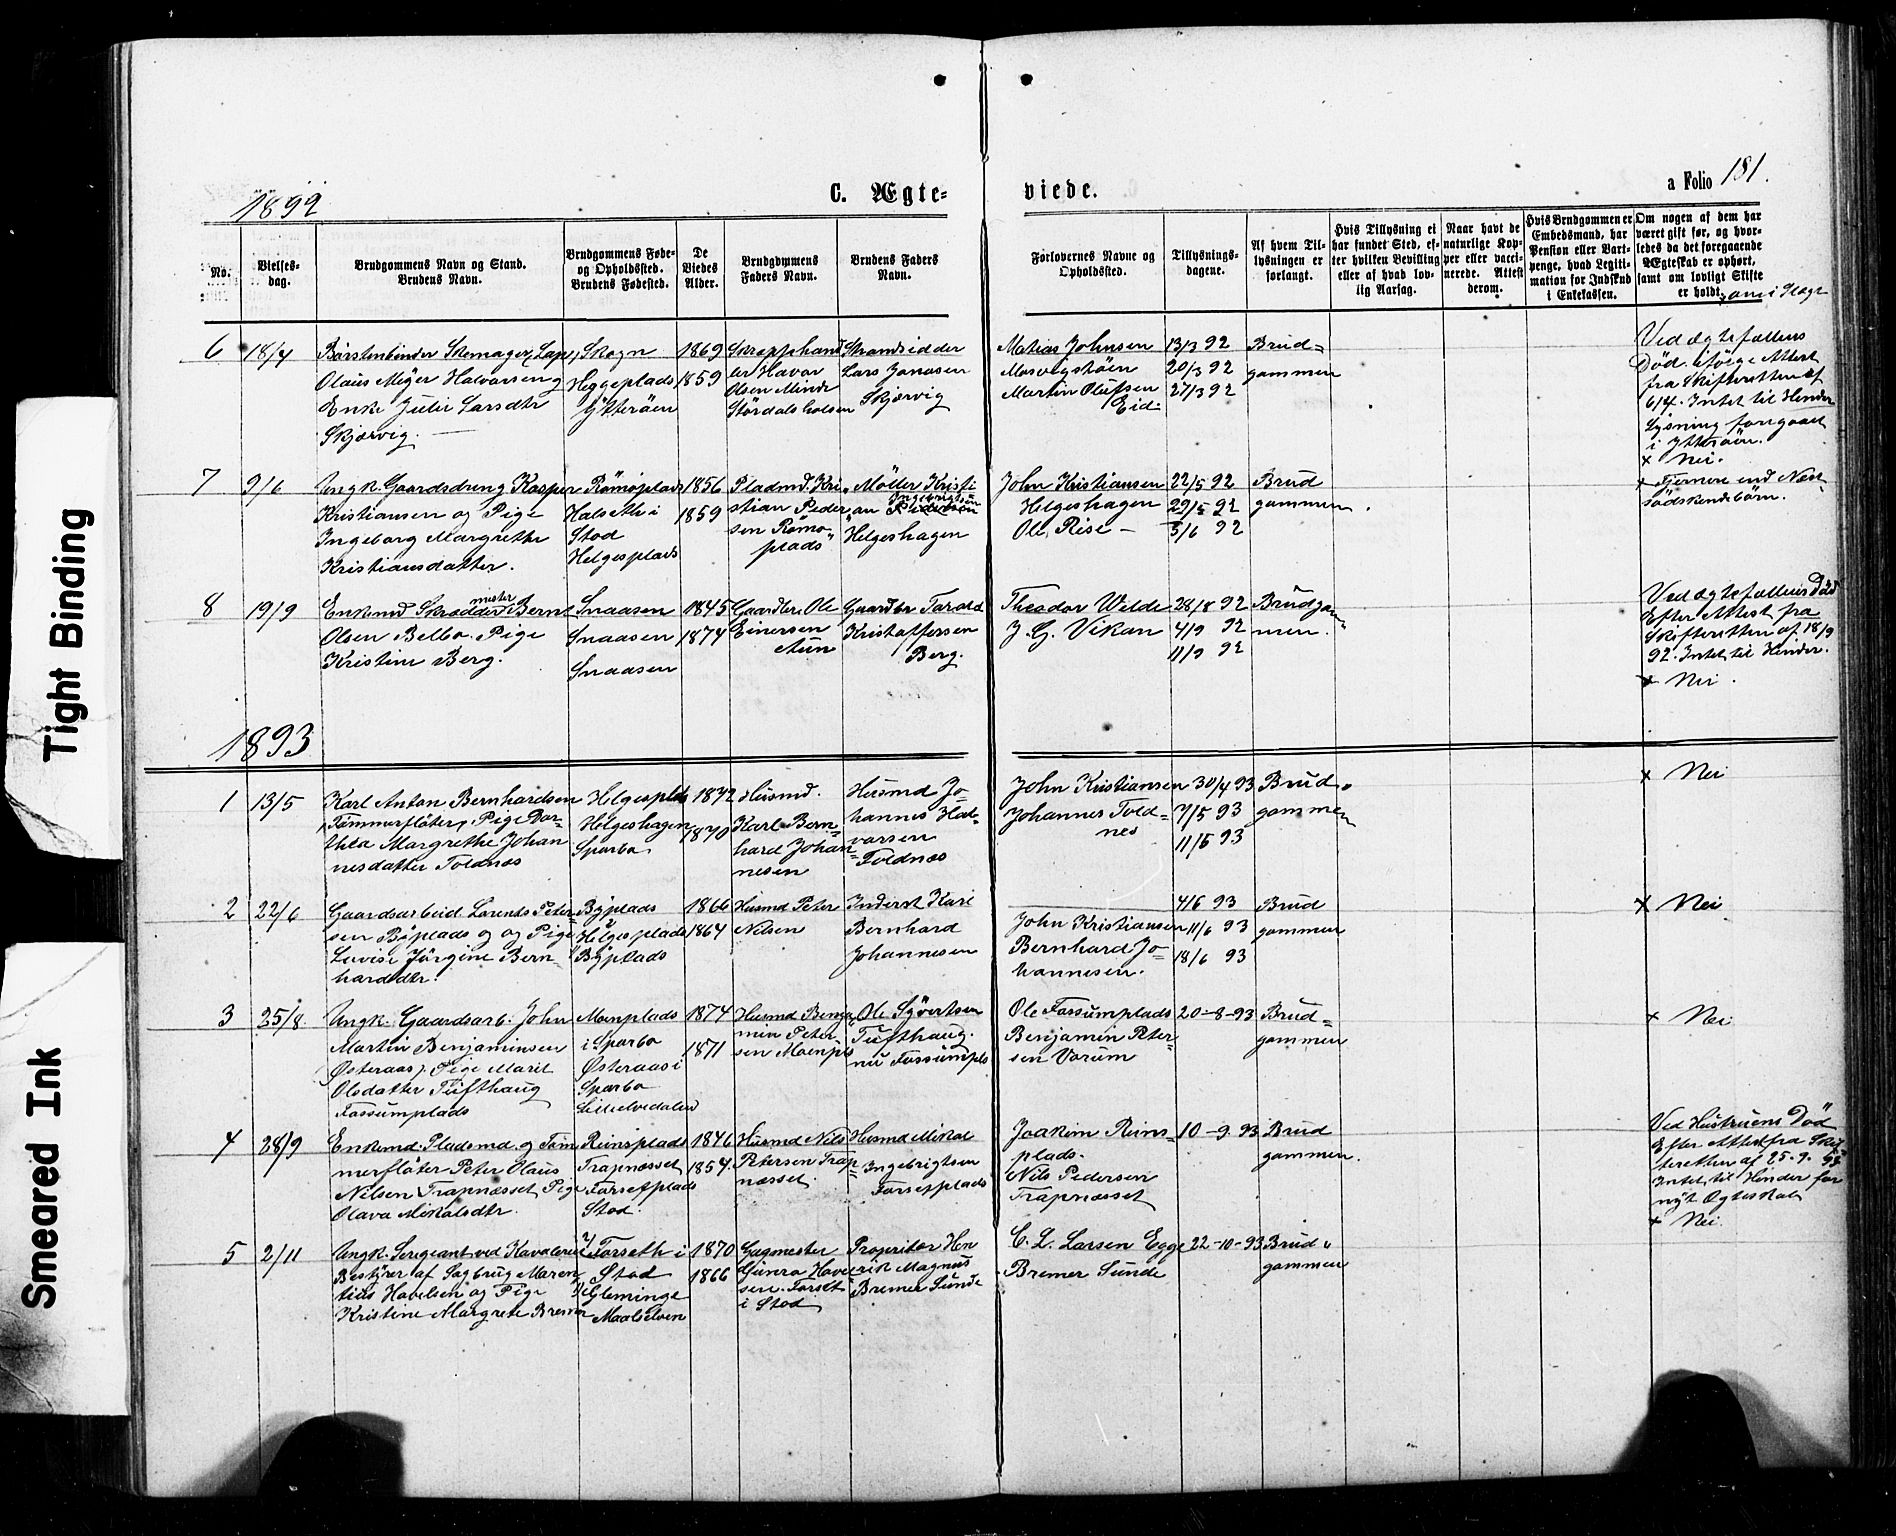 1892
C. Ægte-
viede.
a Folio 181.
No.
Vielses-
dag.
Brudgommens Navn og Stand.
Brudens Navn.
Brudgommens Føde-
og Opholdssted.
Brudens Fødested.
De
Viedes
Alder.
Brudgommens
Faders Navn.
Brudens Faders
Navn.
Forlovernes Navne og
Opholdssted.
Tillysnings-
dagene.
Af hvem Til-
lysningen er
forlangt.
Hvis Tillysning ei
har fundet Sted, ef-
ter hvilken Bevilling
eller af hvad lov-
lig Aarsag.
Naar havt de
naturlige Kop-
per eller vacci-
nerede. Attest
derom.
Hvis Brudgommen er
Embedsmand, har
Pension eller Vart-
penge, hvad Legiti-
mation for Indskud
i Enkekassen.
Om nogen af dem har
været gift før, og hvor-
ledes da det foregaaende
Ægteskab er ophørt,
samt om lovligt Skifte
er holdt.
6
18/4
Børstenbinder Skomager, Lap,
Olaus Meyer Halvorsen og
Enke Julie Larsdtr
Skjærvig.
Skogn
Heggeplads
Ytterøen
1869
1859
Skraphand
ler Havor
Olsen Minde
Stördalshalsen
Strandsidder
Lars Jonasen
Skjærvig
Matias Johnsen
Mosvigstöen
Martin Olufsen
Eid.
13/3 92
20/3 92
27/3 92
Brud=
gommen
Ved Ægtefælles
Död. ifölge Attest
fra Skifteretten af
6/4. Intet til Hinder
Lysning foregaaet
i Ytteröen.
x Nei.
7
9/6
Ungk. Gaardsdreng Kasper
Kristiansen og Pige
Ingeborg Margrethe
Kristiansdatter.
Römoplads
Halseth i
Stod
Helgesplads
1856
1859
Pladsmd. Kri
stian Peder
sen Römo-
plads
Möller Kristi
an Ingebrigtsen
Helgeshagen
John Kristiansen
Helgeshagen
Ole Rise –
22/5 92
29/5 92
5/6 92
Brud
gommen.
x Fjernere end Næst
södskendebörn.
8
19/9
Enkemd Skræddermester Bernt
Olsen Belbo. Pige
Kristine Berg.
Snaasen
Snaasen
Snaasen
1845
1874
Gaardbr. Ole
Einersen
Aun
Gaardbr Tarald
Kristoffersen
Berg.
Theodor Welde
J. G. Vikan
28/8 92
4/9 92
11/9 92
Brudgom
men.
Ved Ægtefælles Död
Efter Attest fra
Skifteretten af 18/9
92. Intet til Hinder.
x Nei.
1893
1
13/5
Karl Anton Bernhardsen
(Tömmerflöter) Pige Dor-
thea Margrethe Johan
nesdatter Toldnæs
Helgesplds
Helgeshagen
Sparbo
1872
1870
Husmd.
Karl Bern-
hard Johan
nesen
Husmd Jo-
hannes Hal-
varsen
Toldnæs
John Kristiansen
Johannes Told-
nes
30/4 93
7/5 93
11/5 93
Brud-
gommen
x Nei
2
22/6
Gaardsarbeid. Lorents Peter-
sen Byplads og Pige
Lovise Jörgine Bern-
hardsdtr.
Byplads
Helgesplads
Byplads
1866
1864
Husmd Peter
Nilsen
Inderst Karl
Bernhard
Johannesen
John Kristiansen
Bernhard Jo-
hannesen.
4/6 93
11/6 93
18/6 93
Brud
gommen
x Nei
3
25/8
Ungk. Gaardsarb. John
Martin Benjaminsen
(Østeraas). Pige Marit
Olsdatter Tufthaug
Fossumplads
Moenplads
i Sparbo
Østeraas i
Sparbo
Lilleelvedalen
1874
1871
Husmd Benja
min Peter
sen Moenpls
Ole Syvertsen
Tufthaug.
nu Fossumpls
Ole Fossumplads
Benjamin Peter-
sen Vorum
20-8-93
Brud=
gommen
x Nei
4
28/9
Enkemd. Pladsmd. og Töm
merflöter Peter Olaus
Nilsen Trapnæsset. Pige
Olava Mikalsdtr.
Reinsplads
Trapnæsset
Forsetplads
Stod.
1846
1854.
Husmd Nils
Petersen Trap-
næsset.
Husmd Mikal
Ingebrigtsen
Forsetplads
Joakim Reins-
plads.
Nils Pedersen
Trapnæsset
10-9-93
Brud
gommen.
Ved Hustruens Död
Efter Attest fra Skif
teretten af 25-9. 93
Intet til Hinder for
nyt Ægteskab
x Nei.
5
2/11
Ungk. Sergeant ved Kavaleriet
Bestyrer af Sagbrug Maren
tius Havelsen og Pige
Kristine Margrete Bremer
Forseth i
Stod
Gleminge
Maalselven
1870
1866
Sagmester
Gunro Havel
sen Forset
i Stod
Propritær Hen
rik Magnus
Bremer Sunde
C. L. Larsen Egge
Bremer Sunde
22-10-93
Brud-
gommen
Tight Binding
Smeared Ink